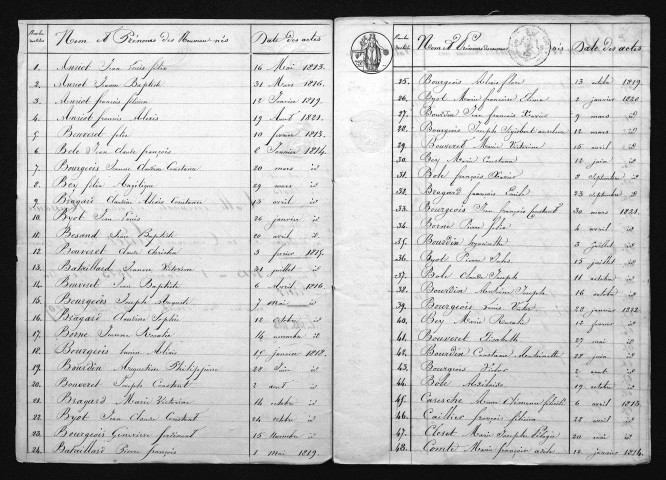 Nom et Prénoms des Nouveaux nés Date des actes
1. Auriot Jean Louis félix 16 Mai 1813.
2. Auriot Jeanne Baptiste 31 Mars 1816.
3. Auriot françois 12 Janvier 1819.
4. Auriot francois Alexis 19 Aout 1821.
5. Bouveret félix 10 février 1813.
6. Bole Jean Claude françois 8 Janvier 1814.
7. Bourgeois Jeanne Claudine Constance 20 mars id
8. Bey félix Angélique 29 mars id
9. Bragard Claudine Alexis Constance 13 avril id
10. Byot Jean Louis 26 janvier id
11. Besand Jean Baptiste 20 avril id
12. Bouveret Claude Christin 3 fevrier 1815.
13. Bataillard Jeanne Victorine 21 juillet id
14. Bouveret Jean Baptiste 6 Avril 1816.
15. Bourgeois Joseph Auguste 7 mai id
16. Bragard Claudine Sophie 12 octobre id
17. Borne Jeanne Rosalie 14 novembre id
18. Bourgeois Alexis 15 janvier 1818.
19. Bourdin Augustine Philippine 28 Juin id
20. Bouveret Joseph Constant 2 aout id
21. Bragard Marie Victorine 14 octobre id
22. Byot Jean Claude Constant 24 octobre id
23. Bourgeois Genevieve ferdinand 15 Novembre id
24. Bataillard Pierre françois 1 mai 1819.
Nom et Prénoms Date des actes
25. Bourgeois Alexis flore 13 octobre 1819.
26. Byot Marie françoise 2 janvier 1820.
27. Bourdin Jean francois Xavier 9 mars id
28. Bourgeois Joseph 12 mars id
29. Bouveret Marie Victorine 15 avril id
30. Bey Marie Constance 12 juin id
31. Bole françois Xavier 8 Septembre id
32. Bragard francois Emile 23 septembre id
33. Bourgeois Jean françois Constant 30 mars 1821.
34. Borne Pierre félix 4 avril id
35. Bourdin hyacinthe 3 juillet id
36. Byot Pierre Jules 15 juillet id
37. Bole Claude Joseph 11 octobre id
38. Bourdin Antoine Joseph 16 octobre id
39. Bourgeois Louis Victor 20 janvier 1822
40. Bey Marie Rosalie 12 fevrier id
41. Bouveret Elisabeth 27 mai id
42. Bourdin Constance Antoinette 28 juin id
43. Bourgeois Victor 2 aout id
44. Bole Adelaide 19 octobre id
45. 6 avril 1813.
46. Caillier françois 28 avril id
47. Closet Marie Josephe 20 mai id
48. Comte Marie françoise 12 janvier 1814.